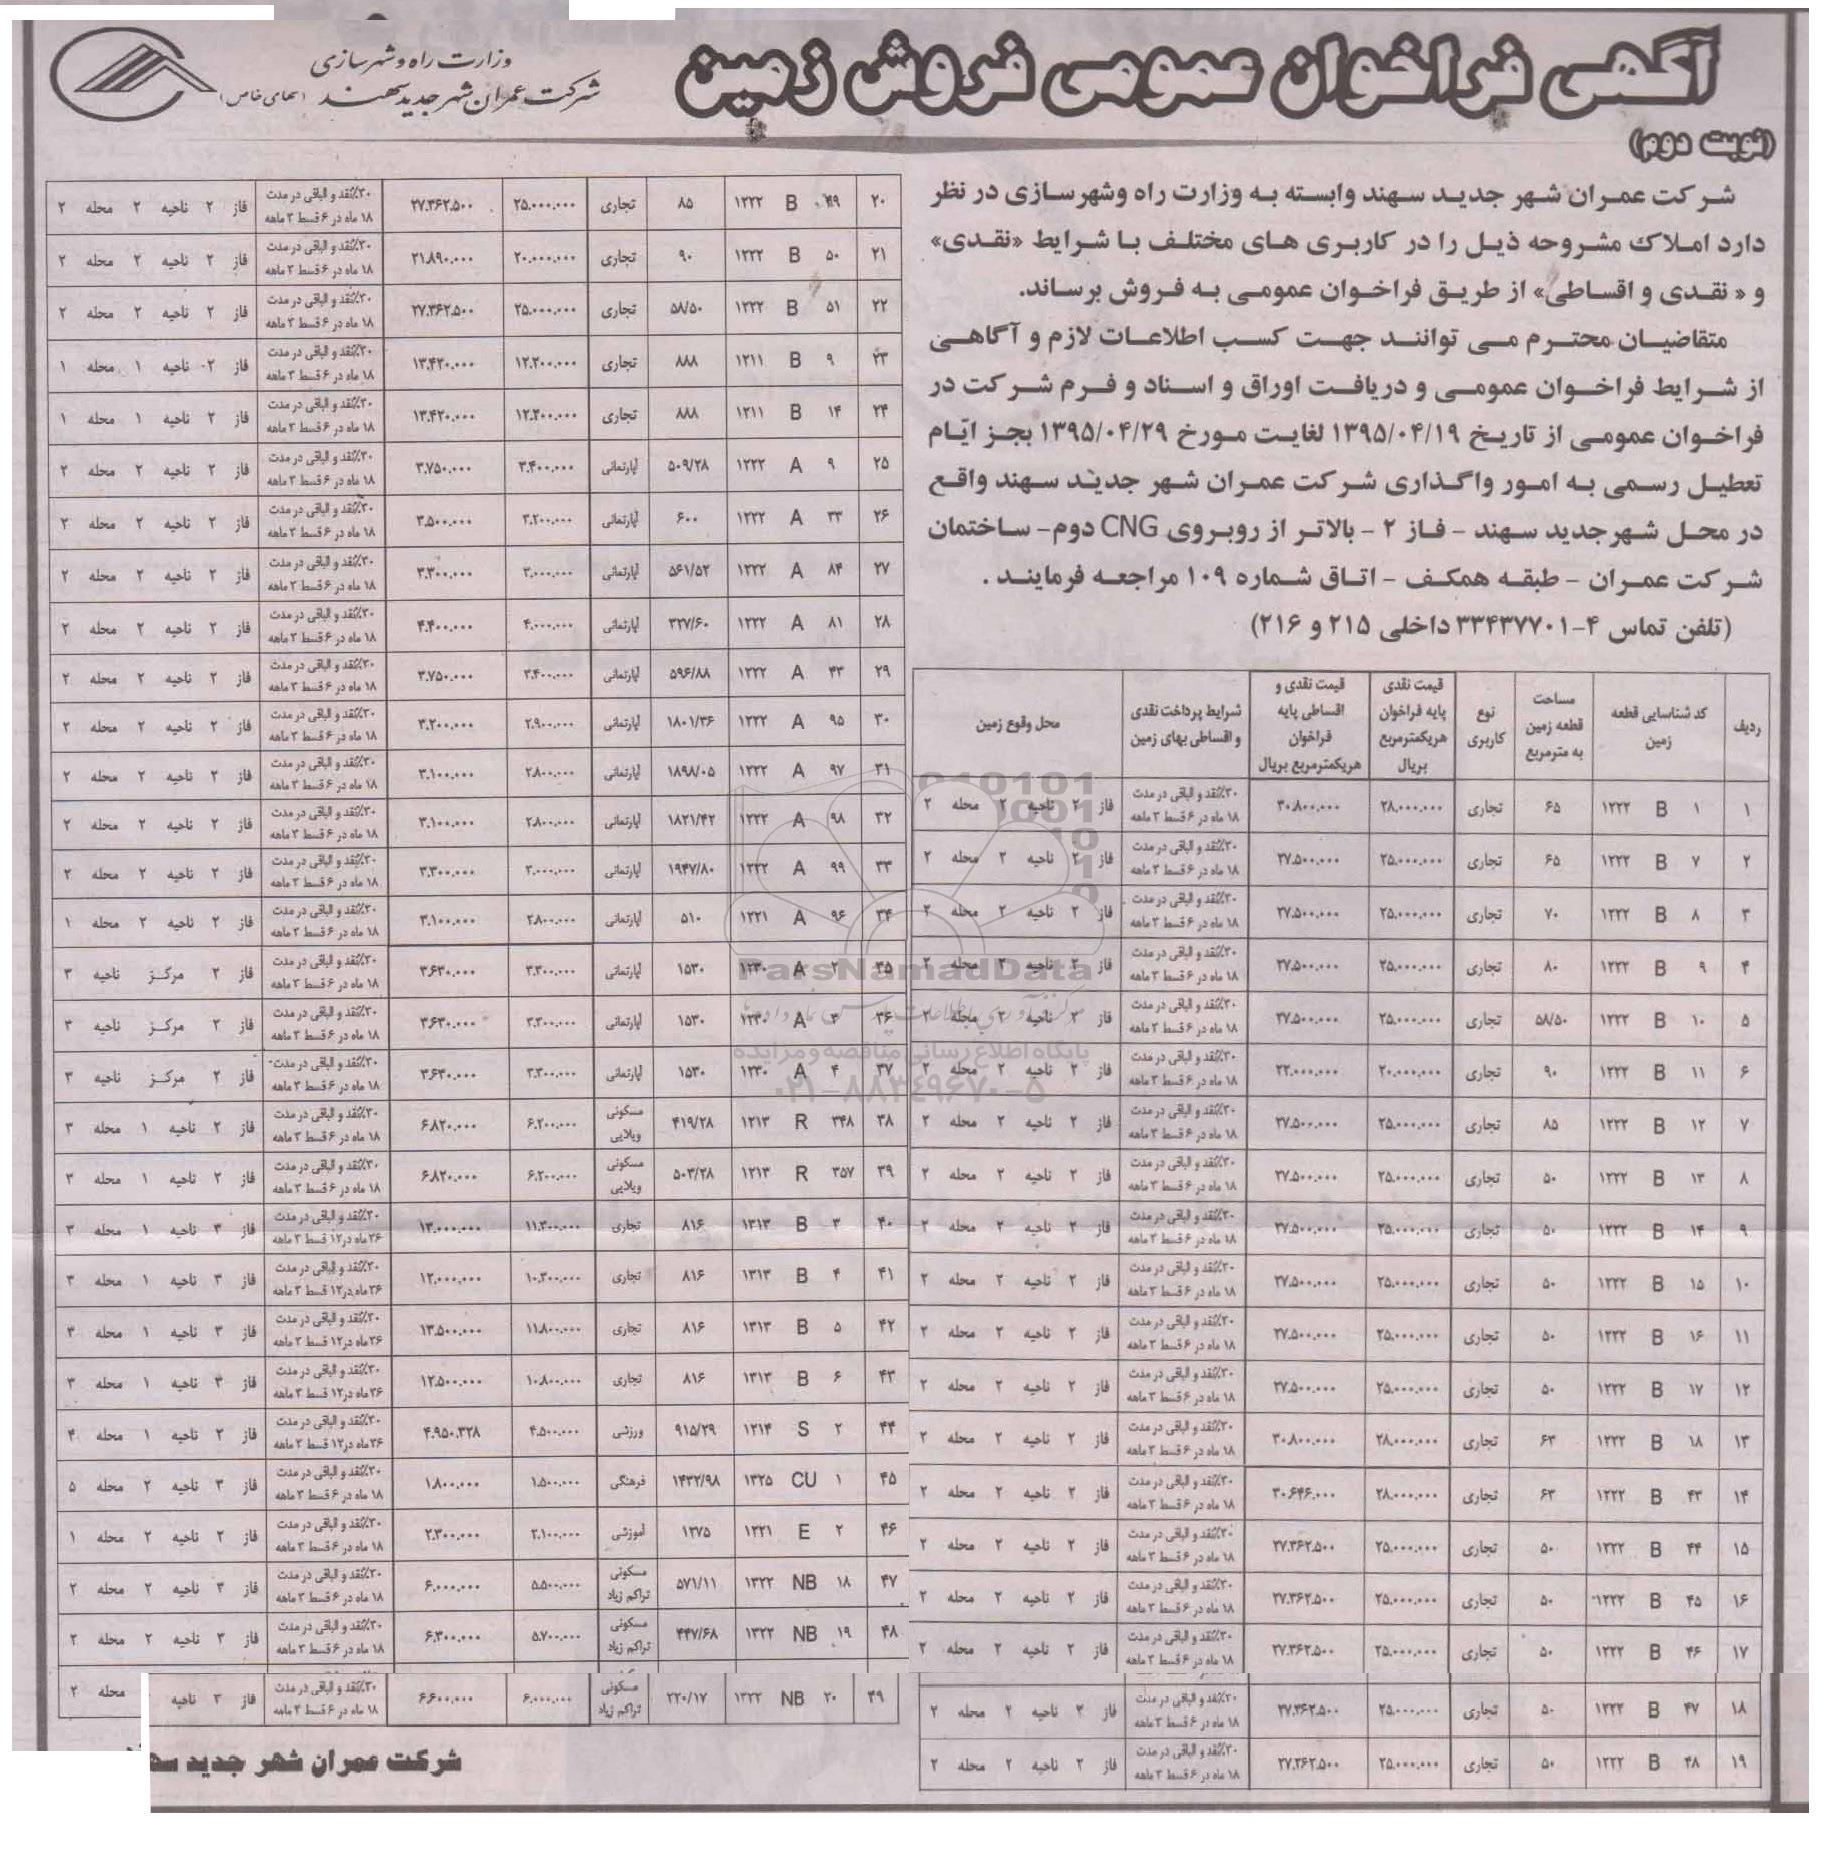 آگهی فراخوان عمومی فروش زمین
(نوبت دوم)
وزارت راه و شهرسازی
شرکت عمران شهر جدید سهند (سهامی خاص)
شرکت عمران شهر جدید سهند وابسته به وزارت راه وشهرسازی در نظر
دارد املاک مشروحه ذیل را در کاربری های مختلف با شرایط «نقدی»
و « نقدی و اقساطی» از طریق فراخوان عمومی به فروش برساند.
متقاضیان محترم می توانند جهت کسب اطلاعات لازم و آگاهی
از شرایط فراخوان عمومی و دریافت اوراق و اسناد و فرم شرکت در
فراخوان عمومی از تاریخ ۱۳۹۵/۰۴/۱۹ لغایت مورخ ۱۳۹۵/۰۴/۲۹ بجز ایّام
تعطیل رسمی به امور واگذاری شرکت عمران شهر جدید سهند واقع
در محل شهرجدید سهند - فاز ۲ - بالاتر از روبروی CNG دوم- ساختمان
شرکت عمران - طبقه همکف - اتاق شماره ۱۰۹ مراجعه فرمایند .
(تلفن تماس ۴-۳۳۴۳۷۷۰۱ داخلی ۲۱۵ و ۲۱۶)
ردیف | کد شناسایی قطعه زمین | مساحت قطعه زمین به مترمربع | نوع کاربری | قیمت نقدی پایه فراخوان هریکمترمربع بریال | قیمت نقدی و اقساطی پایه فراخوان هریکمترمربع بریال | شرایط پرداخت نقدی و اقساطی بهای زمین | محل وقوع زمین
۱ | ۱ B ۱۲۲۲ | ۶۵ | تجاری | ۲۸.۰۰۰.۰۰۰ | ۳۰.۸۰۰.۰۰۰ | ۳۰٪نقد و الباقی در مدت ۱۸ ماه در ۶ قسط ۳ ماهه | فاز ۲ ناحیه ۲ محله ۲
۲ | ۷ B ۱۲۲۲ | ۶۵ | تجاری | ۲۵.۰۰۰.۰۰۰ | ۲۷.۵۰۰.۰۰۰ | ۳۰٪نقد و الباقی در مدت ۱۸ ماه در ۶ قسط ۳ ماهه | فاز ۲ ناحیه ۲ محله ۲
۳ | ۸ B ۱۲۲۲ | ۷۰ | تجاری | ۲۵.۰۰۰.۰۰۰ | ۲۷.۵۰۰.۰۰۰ | ۳۰٪نقد و الباقی در مدت ۱۸ ماه در ۶ قسط ۳ ماهه | فاز ۲ ناحیه ۲ محله ۲
۴ | ۹ B ۱۲۲۲ | ۸۰ | تجاری | ۲۵.۰۰۰.۰۰۰ | ۲۷.۵۰۰.۰۰۰ | ۳۰٪نقد و الباقی در مدت ۱۸ ماه در ۶ قسط ۳ ماهه | فاز ۲ ناحیه ۲ محله ۲
۵ | ۱۰ B ۱۲۲۲ | ۵۸/۵۰ | تجاری | ۲۵.۰۰۰.۰۰۰ | ۲۷.۵۰۰.۰۰۰ | ۳۰٪نقد و الباقی در مدت ۱۸ ماه در ۶ قسط ۳ ماهه | فاز ۲ ناحیه ۲ محله ۲
۶ | ۱۱ B ۱۲۲۲ | ۹۰ | تجاری | ۲۰.۰۰۰.۰۰۰ | ۲۲.۰۰۰.۰۰۰ | ۳۰٪نقد و الباقی در مدت ۱۸ ماه در ۶ قسط ۳ ماهه | فاز ۲ ناحیه ۲ محله ۲
۷ | ۱۲ B ۱۲۲۲ | ۸۵ | تجاری | ۲۵.۰۰۰.۰۰۰ | ۲۷.۵۰۰.۰۰۰ | ۳۰٪نقد و الباقی در مدت ۱۸ ماه در ۶ قسط ۳ ماهه | فاز ۲ ناحیه ۲ محله ۲
۸ | ۱۳ B ۱۲۲۲ | ۵۰ | تجاری | ۲۵.۰۰۰.۰۰۰ | ۲۷.۵۰۰.۰۰۰ | ۳۰٪نقد و الباقی در مدت ۱۸ ماه در ۶ قسط ۳ ماهه | فاز ۲ ناحیه ۲ محله ۲
۹ | ۱۴ B ۱۲۲۲ | ۵۰ | تجاری | ۲۵.۰۰۰.۰۰۰ | ۲۷.۵۰۰.۰۰۰ | ۳۰٪نقد و الباقی در مدت ۱۸ ماه در ۶ قسط ۳ ماهه | فاز ۲ ناحیه ۲ محله ۲
۱۰ | ۱۵ B ۱۲۲۲ | ۵۰ | تجاری | ۲۵.۰۰۰.۰۰۰ | ۲۷.۵۰۰.۰۰۰ | ۳۰٪نقد و الباقی در مدت ۱۸ ماه در ۶ قسط ۳ ماهه | فاز ۲ ناحیه ۲ محله ۲
۱۱ | ۱۶ B ۱۲۲۲ | ۵۰ | تجاری | ۲۵.۰۰۰.۰۰۰ | ۲۷.۵۰۰.۰۰۰ | ۳۰٪نقد و الباقی در مدت ۱۸ ماه در ۶ قسط ۳ ماهه | فاز ۲ ناحیه ۲ محله ۲
۱۲ | ۱۷ B ۱۲۲۲ | ۵۰ | تجاری | ۲۵.۰۰۰.۰۰۰ | ۲۷.۵۰۰.۰۰۰ | ۳۰٪نقد و الباقی در مدت ۱۸ ماه در ۶ قسط ۳ ماهه | فاز ۲ ناحیه ۲ محله ۲
۱۳ | ۱۸ B ۱۲۲۲ | ۶۳ | تجاری | ۲۸.۰۰۰.۰۰۰ | ۳۰.۸۰۰.۰۰۰ | ۳۰٪نقد و الباقی در مدت ۱۸ ماه در ۶ قسط ۳ ماهه | فاز ۲ ناحیه ۲ محله ۲
۱۴ | ۴۳ B ۱۲۲۲ | ۶۳ | تجاری | ۲۸.۰۰۰.۰۰۰ | ۳۰.۶۴۶.۰۰۰ | ۳۰٪نقد و الباقی در مدت ۱۸ ماه در ۶ قسط ۳ ماهه | فاز ۲ ناحیه ۲ محله ۲
۱۵ | ۴۴ B ۱۲۲۲ | ۵۰ | تجاری | ۲۵.۰۰۰.۰۰۰ | ۲۷.۳۶۲.۵۰۰ | ۳۰٪نقد و الباقی در مدت ۱۸ ماه در ۶ قسط ۳ ماهه | فاز ۲ ناحیه ۲ محله ۲
۱۶ | ۴۵ B ۱۲۲۲ | ۵۰ | تجاری | ۲۵.۰۰۰.۰۰۰ | ۲۷.۳۶۲.۵۰۰ | ۳۰٪نقد و الباقی در مدت ۱۸ ماه در ۶ قسط ۳ ماهه | فاز ۲ ناحیه ۲ محله ۲
۱۷ | ۴۶ B ۱۲۲۲ | ۵۰ | تجاری | ۲۵.۰۰۰.۰۰۰ | ۲۷.۳۶۲.۵۰۰ | ۳۰٪نقد و الباقی در مدت ۱۸ ماه در ۶ قسط ۳ ماهه | فاز ۲ ناحیه ۲ محله ۲
۱۸ | ۴۷ B ۱۲۲۲ | ۵۰ | تجاری | ۲۵.۰۰۰.۰۰۰ | ۲۷.۳۶۲.۵۰۰ | ۳۰٪نقد و الباقی در مدت ۱۸ ماه در ۶ قسط ۳ ماهه | فاز ۲ ناحیه ۲ محله ۲
۱۹ | ۴۸ B ۱۲۲۲ | ۵۰ | تجاری | ۲۵.۰۰۰.۰۰۰ | ۲۷.۳۶۲.۵۰۰ | ۳۰٪نقد و الباقی در مدت ۱۸ ماه در ۶ قسط ۳ ماهه | فاز ۲ ناحیه ۲ محله ۲
۲۰ | ۴۹ B ۱۲۲۲ | ۸۵ | تجاری | ۲۵.۰۰۰.۰۰۰ | ۲۷.۳۶۲.۵۰۰ | ۳۰٪نقد و الباقی در مدت ۱۸ ماه در ۶ قسط ۳ ماهه | فاز ۲ ناحیه ۲ محله ۲
۲۱ | ۵۰ B ۱۲۲۲ | ۹۰ | تجاری | ۲۰.۰۰۰.۰۰۰ | ۲۱.۸۹۰.۰۰۰ | ۳۰٪نقد و الباقی در مدت ۱۸ ماه در ۶ قسط ۳ ماهه | فاز ۲ ناحیه ۲ محله ۲
۲۲ | ۵۱ B ۱۲۲۲ | ۵۸/۵۰ | تجاری | ۲۵.۰۰۰.۰۰۰ | ۲۷.۳۶۲.۵۰۰ | ۳۰٪نقد و الباقی در مدت ۱۸ ماه در ۶ قسط ۳ ماهه | فاز ۲ ناحیه ۲ محله ۲
۲۳ | ۹ B ۱۲۱۱ | ۸۸۸ | تجاری | ۱۲.۲۰۰.۰۰۰ | ۱۳.۴۲۰.۰۰۰ | ۳۰٪نقد و الباقی در مدت ۱۸ ماه در ۶ قسط ۳ ماهه | فاز ۲ ناحیه ۱ محله ۱
۲۴ | ۱۴ B ۱۲۱۱ | ۸۸۸ | تجاری | ۱۲.۲۰۰.۰۰۰ | ۱۳.۴۲۰.۰۰۰ | ۳۰٪نقد و الباقی در مدت ۱۸ ماه در ۶ قسط ۳ ماهه | فاز ۲ ناحیه ۱ محله ۱
۲۵ | ۹ A ۱۲۲۲ | ۵۰۹/۲۸ | آپارتمانی | ۳.۴۰۰.۰۰۰ | ۳.۷۵۰.۰۰۰ | ۳۰٪نقد و الباقی در مدت ۱۸ ماه در ۶ قسط ۳ ماهه | فاز ۲ ناحیه ۲ محله ۲
۲۶ | ۳۳ A ۱۲۲۲ | ۶۰۰ | آپارتمانی | ۳.۲۰۰.۰۰۰ | ۳.۵۰۰.۰۰۰ | ۳۰٪نقد و الباقی در مدت ۱۸ ماه در ۶ قسط ۳ ماهه | فاز ۲ ناحیه ۲ محله ۲
۲۷ | ۸۴ A ۱۲۲۲ | ۵۶۱/۵۲ | آپارتمانی | ۳.۰۰۰.۰۰۰ | ۳.۳۰۰.۰۰۰ | ۳۰٪نقد و الباقی در مدت ۱۸ ماه در ۶ قسط ۳ ماهه | فاز ۲ ناحیه ۲ محله ۲
۲۸ | ۸۱ A ۱۲۲۲ | ۳۲۷/۶۰ | آپارتمانی | ۴.۰۰۰.۰۰۰ | ۴.۴۰۰.۰۰۰ | ۳۰٪نقد و الباقی در مدت ۱۸ ماه در ۶ قسط ۳ ماهه | فاز ۲ ناحیه ۲ محله ۲
۲۹ | ۴۳ A ۱۲۲۲ | ۵۹۶/۸۸ | آپارتمانی | ۳.۴۰۰.۰۰۰ | ۳.۷۵۰.۰۰۰ | ۳۰٪نقد و الباقی در مدت ۱۸ ماه در ۶ قسط ۳ ماهه | فاز ۲ ناحیه ۲ محله ۲
۳۰ | ۹۵ A ۱۲۲۲ | ۱۸۰۱/۳۶ | آپارتمانی | ۲.۹۰۰.۰۰۰ | ۳.۲۰۰.۰۰۰ | ۳۰٪نقد و الباقی در مدت ۱۸ ماه در ۶ قسط ۳ ماهه | فاز ۲ ناحیه ۲ محله ۲
۳۱ | ۹۷ A ۱۲۲۲ | ۱۸۹۸/۰۵ | آپارتمانی | ۲.۸۰۰.۰۰۰ | ۳.۱۰۰.۰۰۰ | ۳۰٪نقد و الباقی در مدت ۱۸ ماه در ۶ قسط ۳ ماهه | فاز ۲ ناحیه ۲ محله ۲
۳۲ | ۹۸ A ۱۲۲۲ | ۱۸۲۱/۴۲ | آپارتمانی | ۲.۸۰۰.۰۰۰ | ۳.۱۰۰.۰۰۰ | ۳۰٪نقد و الباقی در مدت ۱۸ ماه در ۶ قسط ۳ ماهه | فاز ۲ ناحیه ۲ محله ۲
۳۳ | ۹۹ A ۱۲۲۲ | ۱۹۴۷/۸۰ | آپارتمانی | ۳.۰۰۰.۰۰۰ | ۳.۳۰۰.۰۰۰ | ۳۰٪نقد و الباقی در مدت ۱۸ ماه در ۶ قسط ۳ ماهه | فاز ۲ ناحیه ۲ محله ۲
۳۴ | ۹۶ A ۱۲۲۱ | ۵۱۰ | آپارتمانی | ۲.۸۰۰.۰۰۰ | ۳.۱۰۰.۰۰۰ | ۳۰٪نقد و الباقی در مدت ۱۸ ماه در ۶ قسط ۳ ماهه | فاز ۲ ناحیه ۲ محله ۱
۳۵ | ۲ A ۱۲۳۰ | ۱۵۳۰ | آپارتمانی | ۳.۳۰۰.۰۰۰ | ۳.۶۳۰.۰۰۰ | ۳۰٪نقد و الباقی در مدت ۱۸ ماه در ۶ قسط ۳ ماهه | فاز ۲ مرکز ناحیه ۳
۳۶ | ۳ A ۱۲۳۰ | ۱۵۳۰ | آپارتمانی | ۳.۳۰۰.۰۰۰ | ۳.۶۳۰.۰۰۰ | ۳۰٪نقد و الباقی در مدت ۱۸ ماه در ۶ قسط ۳ ماهه | فاز ۲ مرکز ناحیه ۳
۳۷ | ۴ A ۱۲۳۰ | ۱۵۳۰ | آپارتمانی | ۳.۳۰۰.۰۰۰ | ۳.۶۳۰.۰۰۰ | ۳۰٪نقد و الباقی در مدت ۱۸ ماه در ۶ قسط ۳ ماهه | فاز ۲ مرکز ناحیه ۳
۳۸ | ۳۴۸ R ۱۲۱۳ | ۴۱۹/۲۸ | مسکونی ویلایی | ۶.۲۰۰.۰۰۰ | ۶.۸۲۰.۰۰۰ | ۳۰٪نقد و الباقی در مدت ۱۸ ماه در ۶ قسط ۳ ماهه | فاز ۲ ناحیه ۱ محله ۳
۳۹ | ۳۵۷ R ۱۲۱۳ | ۵۰۳/۲۸ | مسکونی ویلایی | ۶.۲۰۰.۰۰۰ | ۶.۸۲۰.۰۰۰ | ۳۰٪نقد و الباقی در مدت ۱۸ ماه در ۶ قسط ۳ ماهه | فاز ۲ ناحیه ۱ محله ۳
۴۰ | ۳ B ۱۳۱۳ | ۸۱۶ | تجاری | ۱۱.۳۰۰.۰۰۰ | ۱۳.۰۰۰.۰۰۰ | ۳۰٪نقد و الباقی در مدت ۳۶ ماه در ۱۲ قسط ۳ ماهه | فاز ۳ ناحیه ۱ محله ۳
۴۱ | ۴ B ۱۳۱۳ | ۸۱۶ | تجاری | ۱۰.۳۰۰.۰۰۰ | ۱۲.۰۰۰.۰۰۰ | ۳۰٪نقد و الباقی در مدت ۳۶ ماه در ۱۲ قسط ۳ ماهه | فاز ۳ ناحیه ۱ محله ۳
۴۲ | ۵ B ۱۳۱۳ | ۸۱۶ | تجاری | ۱۱.۸۰۰.۰۰۰ | ۱۳.۵۰۰.۰۰۰ | ۳۰٪نقد و الباقی در مدت ۳۶ ماه در ۱۲ قسط ۳ ماهه | فاز ۳ ناحیه ۱ محله ۳
۴۳ | ۶ B ۱۳۱۳ | ۸۱۶ | تجاری | ۱۰.۸۰۰.۰۰۰ | ۱۲.۵۰۰.۰۰۰ | ۳۰٪نقد و الباقی در مدت ۳۶ ماه در ۱۲ قسط ۳ ماهه | فاز ۳ ناحیه ۱ محله ۳
۴۴ | ۲ S ۱۲۱۴ | ۹۱۵/۲۹ | ورزشی | ۴.۵۰۰.۰۰۰ | ۴.۹۵۰.۳۲۸ | ۳۰٪نقد و الباقی در مدت ۳۶ ماه در ۱۲ قسط ۳ ماهه | فاز ۲ ناحیه ۱ محله ۴
۴۵ | ۱ CU ۱۳۲۵ | ۱۴۳۲/۹۸ | فرهنگی | ۱.۵۰۰.۰۰۰ | ۱.۸۰۰.۰۰۰ | ۳۰٪نقد و الباقی در مدت ۱۸ ماه در ۶ قسط ۳ ماهه | فاز ۳ ناحیه ۲ محله ۵
۴۶ | ۲ E ۱۲۲۱ | ۱۳۷۵ | آموزشی | ۲.۱۰۰.۰۰۰ | ۲.۳۰۰.۰۰۰ | ۳۰٪نقد و الباقی در مدت ۱۸ ماه در ۶ قسط ۳ ماهه | فاز ۲ ناحیه ۲ محله ۱
۴۷ | ۱۸ NB ۱۳۲۲ | ۵۷۱/۱۱ | مسکونی تراکم زیاد | ۵.۵۰۰.۰۰۰ | ۶.۰۰۰.۰۰۰ | ۳۰٪نقد و الباقی در مدت ۱۸ ماه در ۶ قسط ۳ ماهه | فاز ۳ ناحیه ۲ محله ۲
۴۸ | ۱۹ NB ۱۳۲۲ | ۴۴۷/۶۸ | مسکونی تراکم زیاد | ۵.۷۰۰.۰۰۰ | ۶.۳۰۰.۰۰۰ | ۳۰٪نقد و الباقی در مدت ۱۸ ماه در ۶ قسط ۳ ماهه | فاز ۳ ناحیه ۲ محله ۲
۴۹ | ۲۰ NB ۱۳۲۲ | ۲۲۰/۱۷ | مسکونی تراکم زیاد | ۶.۰۰۰.۰۰۰ | ۶.۶۰۰.۰۰۰ | ۳۰٪نقد و الباقی در مدت ۱۸ ماه در ۶ قسط ۳ ماهه | فاز ۳ ناحیه محله ۲
شرکت عمران شهر جدید
ParsNamadData
پایگاه اطلاع رسانی مناقصه و مزایده
۰۲۱-۸۸۳۴۹۶۷۰-۵